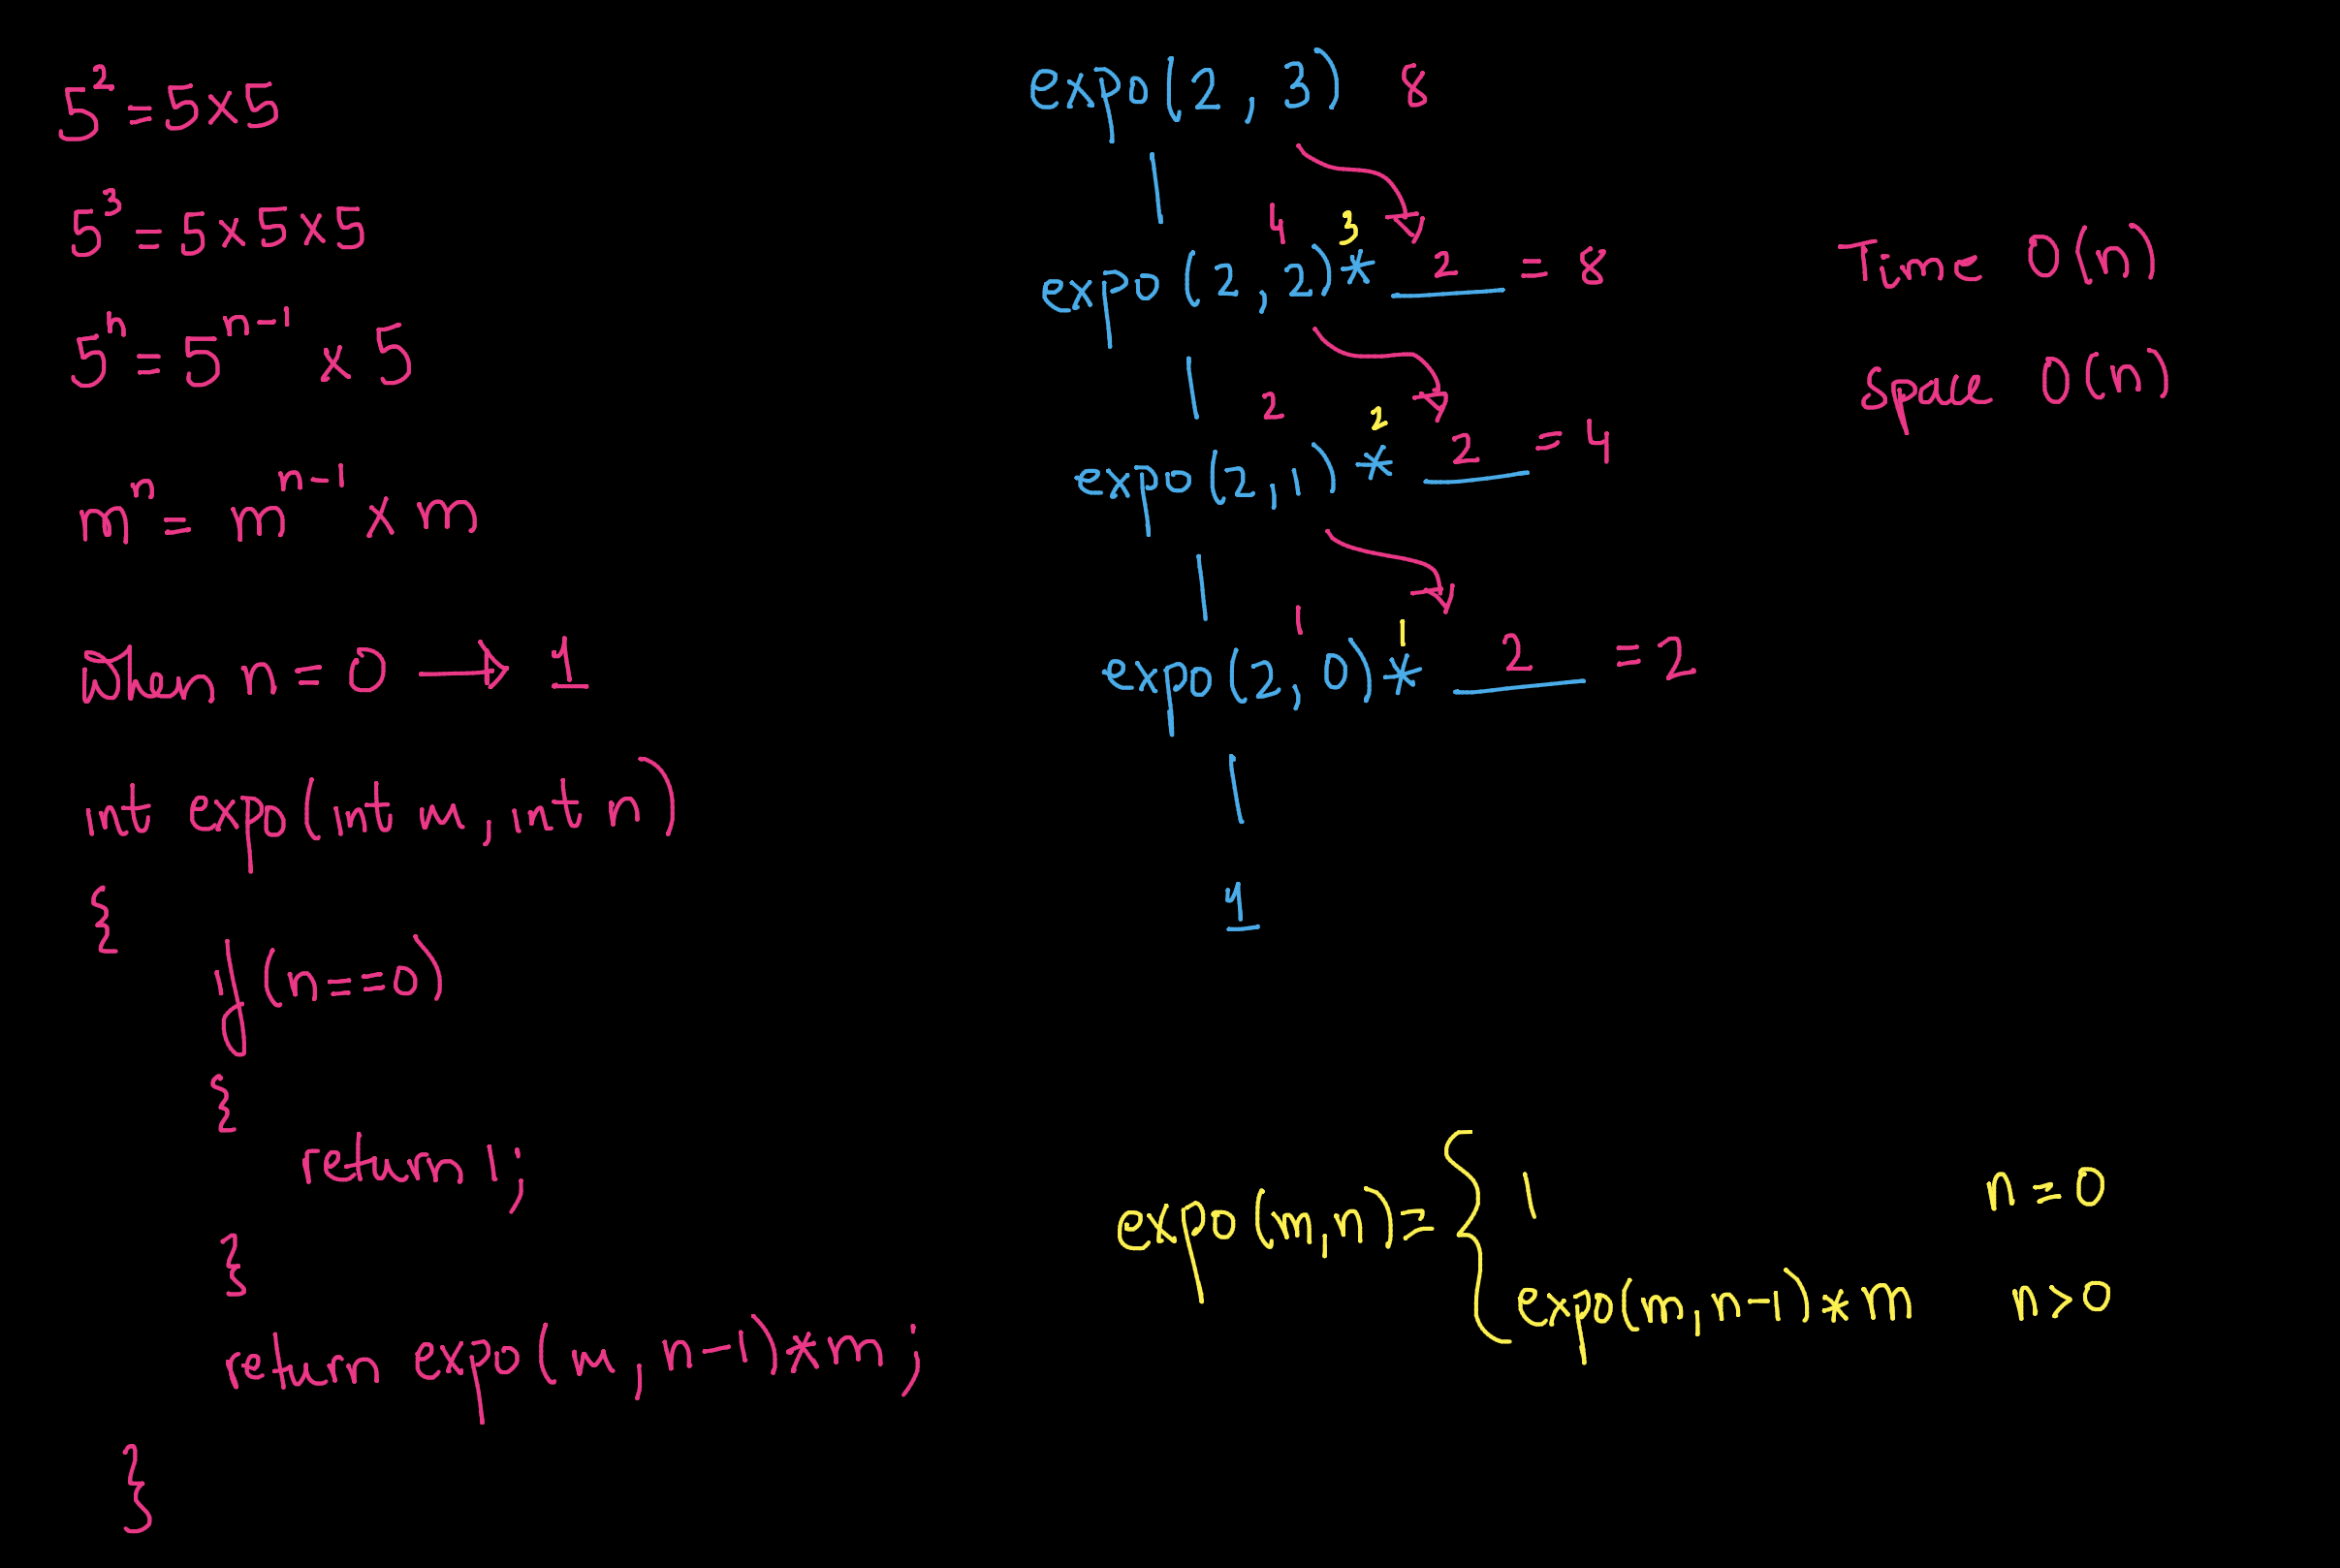 5² = 5×5
5³ = 5×5×5
5ⁿ = 5ⁿ⁻¹ × 5
mⁿ = mⁿ⁻¹ × m
When n = 0 → 1
int expo(int m, int n)
{
if (n==0)
{
return 1;
}
return expo(m, n-1)*m;
}
expo(2, 3) 8
4 3
expo(2, 2)* 2 = 8
2 2
expo(2, 1) * 2 = 4
1 1
expo(2, 0)* 2 = 2
1
Time O(n)
Space O(n)
expo(m,n) = { 1 n=0
expo(m,n-1)*m n>0